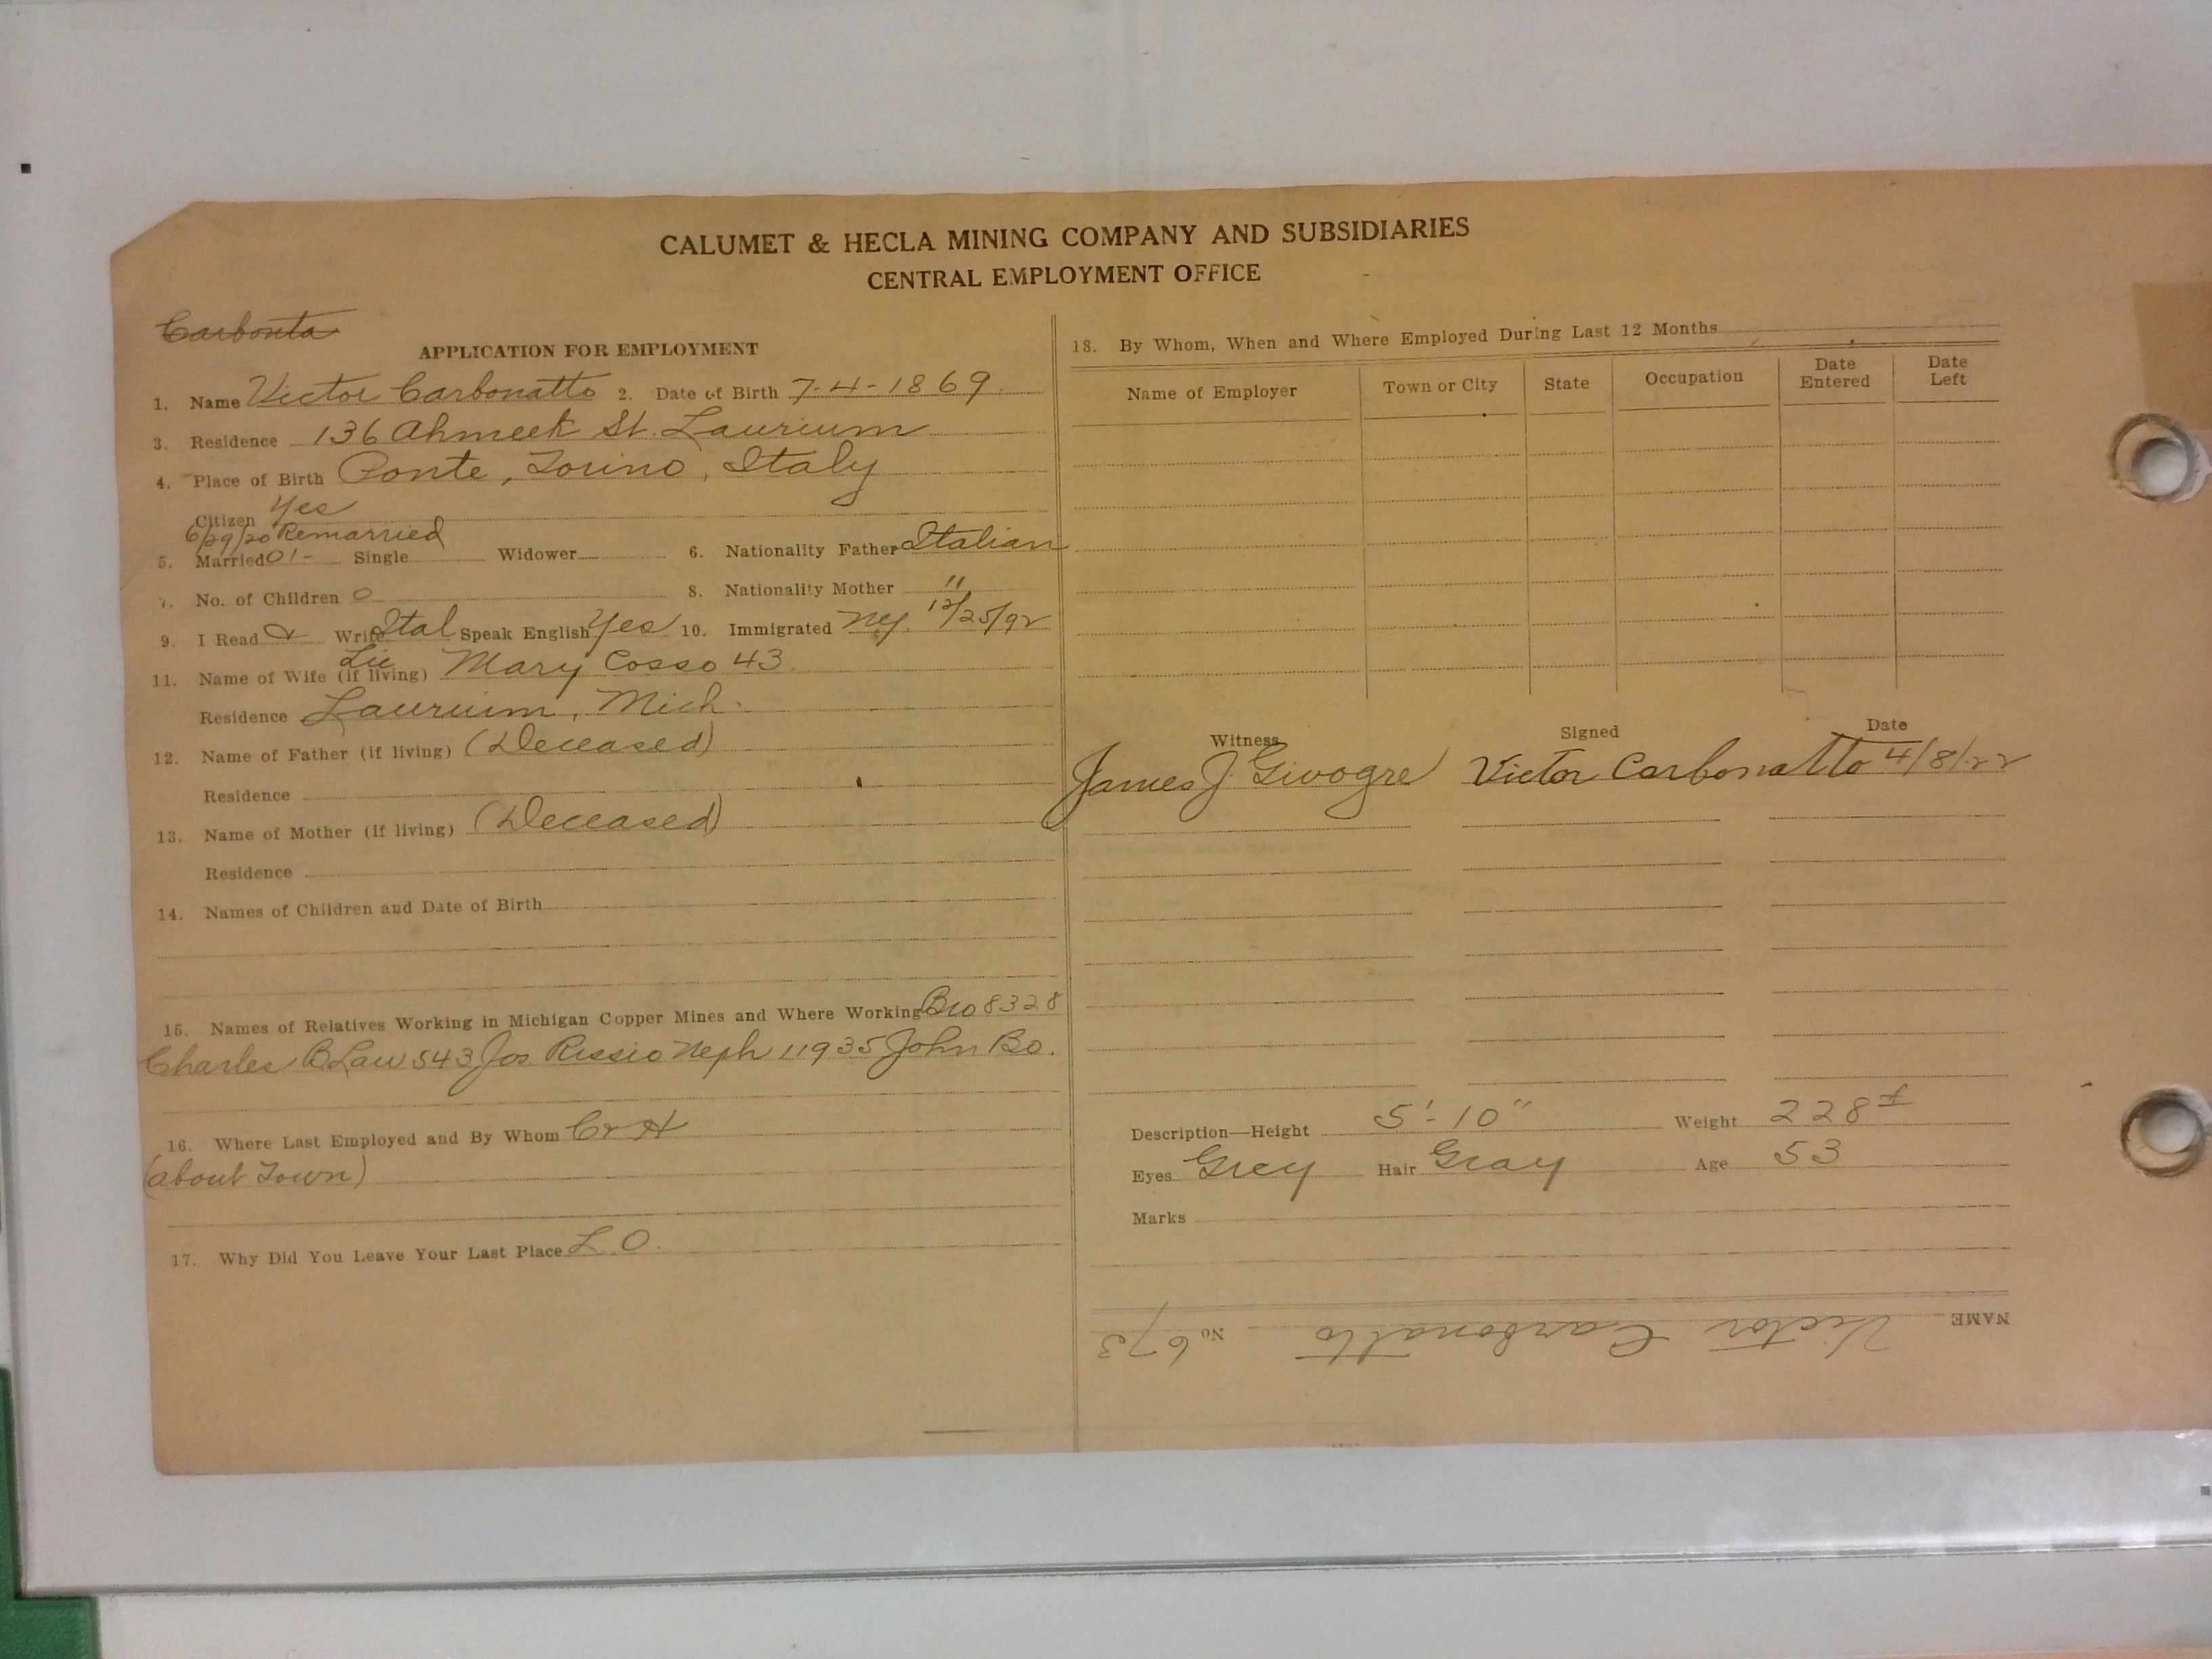 CALUMET & HECLA MINING COMPANY AND SUBSIDIARIES
CENTRAL EMPLOYMENT OFFICE
Carbonta
APPLICATION FOR EMPLOYMENT
1. Name Victor Carbonatto 2. Date of Birth 7-4-1869.
3. Residence 136 Ahmeek St. Laurium
4. Place of Birth Ponte, Torino, Italy
Citizen Yes
6/29/20 Remarried
5. Married 01- Single Widower 6. Nationality Father Italian
7. No. of Children 0 8. Nationality Mother "
9. I Read & Write Ital Speak English Yes 10. Immigrated Ny. 12/25/92
11. Name of Wife (if living) Mary Cosso 43.
Residence Laurium, Mich.
12. Name of Father (if living) (Deceased)
Residence
13. Name of Mother (if living) (Deceased)
Residence
14. Names of Children and Date of Birth
15. Names of Relatives Working in Michigan Copper Mines and Where Working Bro 8328
Charles B Law 543 Jos. Rissio Neph 11935 John Bo.
16. Where Last Employed and By Whom C & H
(about Town)
17. Why Did You Leave Your Last Place L.O.
18. By Whom, When and Where Employed During Last 12 Months
Name of Employer Town or City State Occupation Date Entered Date Left
Witness Signed Date
James J. Givogre Victor Carbonatto 4/8/22
Description—Height 5'-10" Weight 228#
Eyes Grey Hair Gray Age 53
Marks
NAME Victor Carbonatto No 673